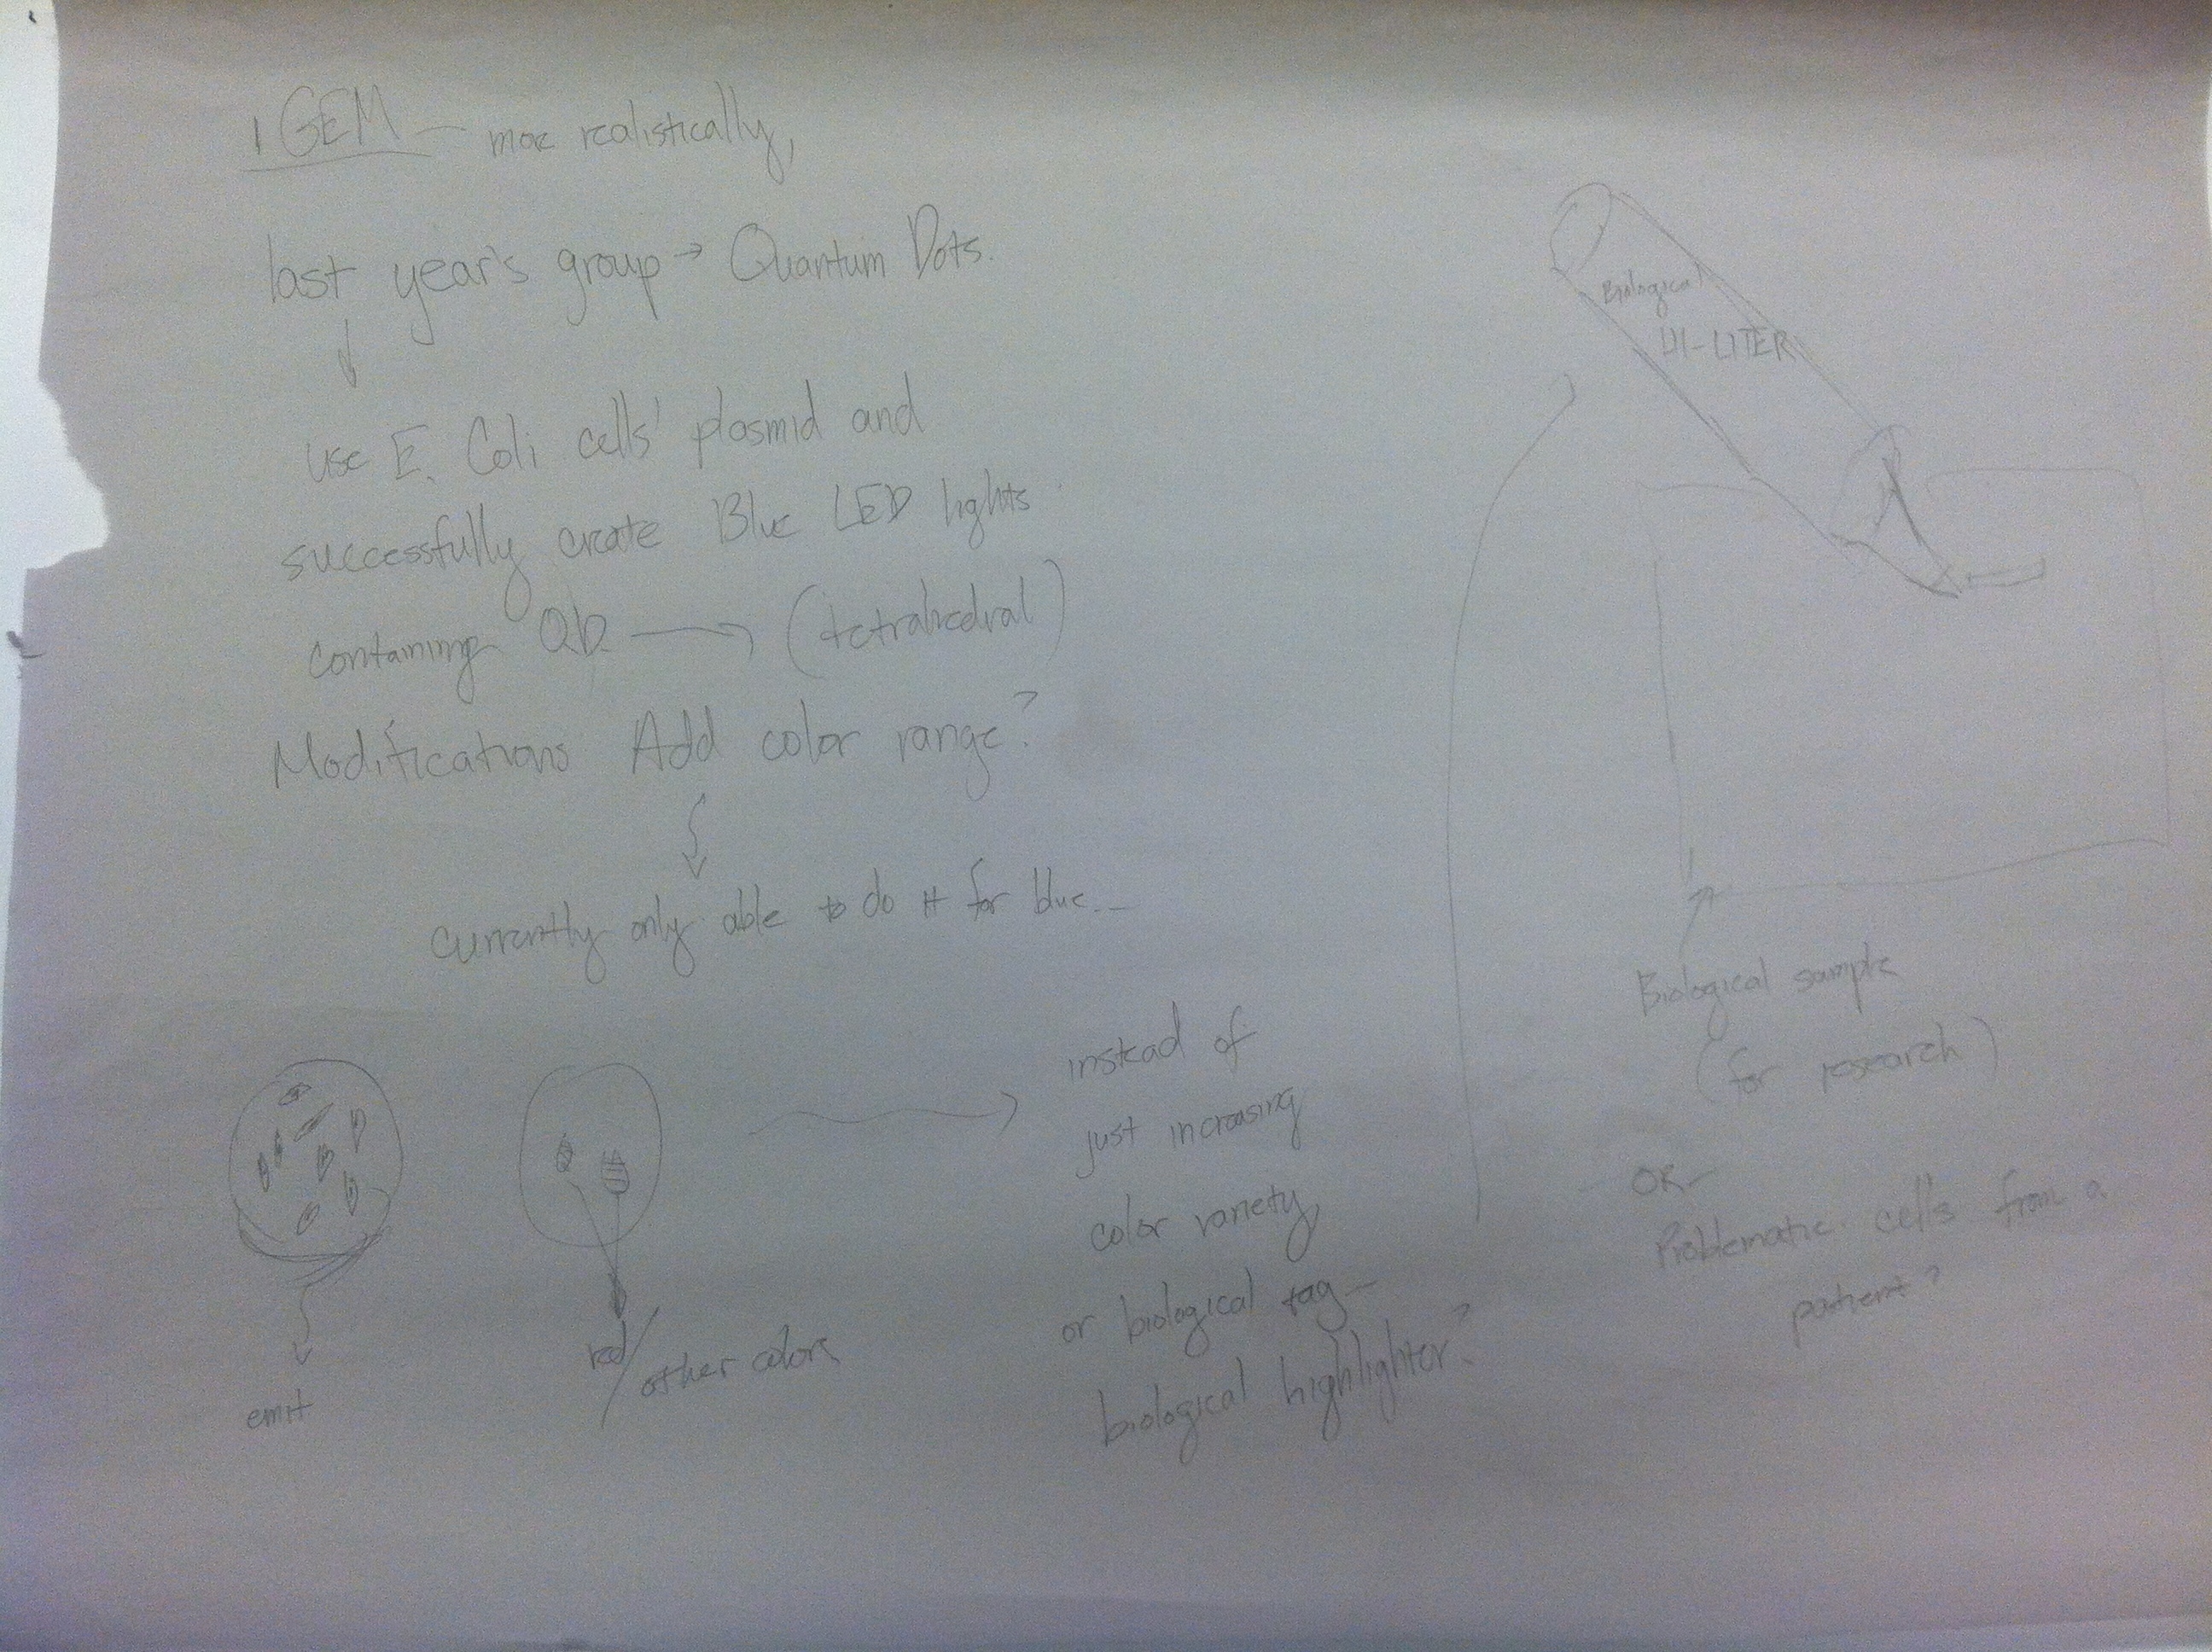 iGEM — more realistically,
last year's group → Quantum Dots.
↓
use E. Coli cells' plasmid and
successfully create Blue LED lights
containing QD → (tetrahedral)
Modifications Add color range?
currently only able to do it for blue..
emit
red/
other colors
instead of
just increasing
color variety
or biological tag—
biological highlighter?
Biological
HI-LITER
Biological sample
(for research)
- OR-
Problematic cells from a
patient?